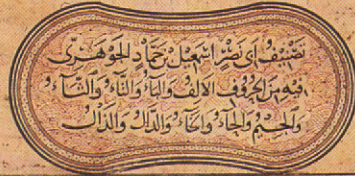 تصنيف أبي نصر إسمعيل بن حماد الجوهري
فيه من الحروف الألف والباء والتاء والثاء
والجيم والحاء والخاء والدال والذال